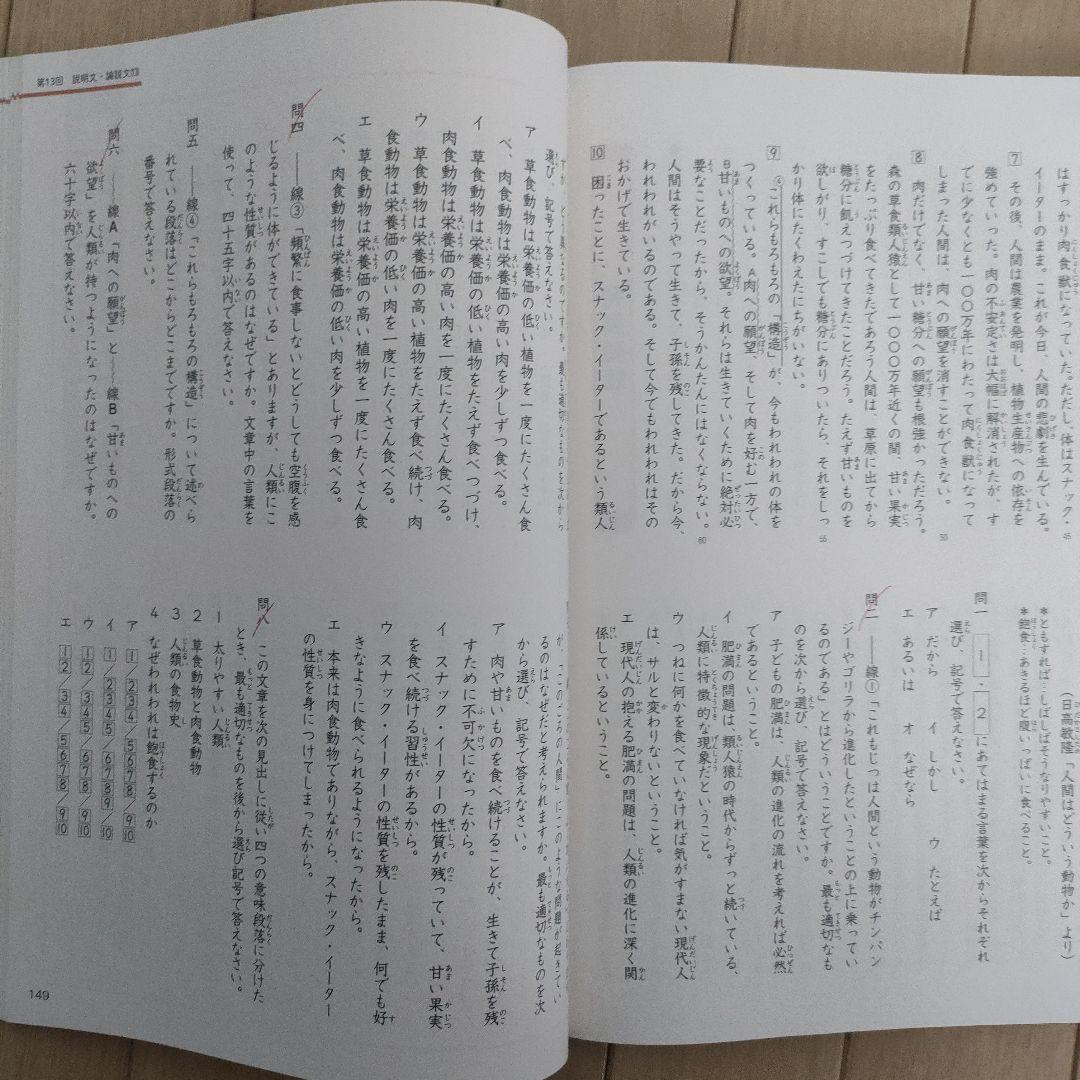 はすっかり肉食獣になっていた。ただし、体はスナック・
イーターのまま。これが今日、人間の悲劇を生んでいる。
7 その後、人間は農業を発明し、植物生産物への依存を
強めていった。肉の不安定さは大幅に解消されたが、す
でに少なくとも一〇〇万年にわたって肉食獣になって
しまった人間は、肉への願望を消すことができない。
8 肉だけでなく、甘い糖分への願望も根強かっただろう。
森の草食類人猿として一〇〇〇万年近くの間、甘い果実
をたっぷり食べてきたであろう人間は、草原に出てから
糖分に飢えつづけてきたことだろう。たえず甘いものを
欲しがり、すこしでも糖分にありついたら、それをしっ
かり体にたくわえたにちがいない。
9 ④これらもろもろの「構造」が、今もわれわれの体を
つくっている。A肉への願望、そして肉を好む一方で、
B甘いものへの欲望。それらは生きていくために絶対必
要なことだったから、そうかんたんにはなくならない。
人間はそうやって生きて、子孫を残してきた。だから今、
われわれがいるのである。そして今でもわれわれはその
おかげで生きている。
10 困ったことに、スナック・イーターであるという類人
45
50
55
60
(日高敏隆「人間はどういう動物か」より)
*ともすれば…しばしばそうなりやすいこと。
*飽食…あきるほど腹いっぱいに食べること。
問一 1・2にあてはまる言葉を次からそれぞれ
選び、記号で答えなさい。
ア だから イ しかし ウ たとえば
エ あるいは オ なぜなら
問二 ――線①「これもじつは人間という動物がチンパン
ジーやゴリラから進化したということの上に乗ってい
るのである」とはどういうことですか。最も適切なも
のを次から選び、記号で答えなさい。
ア 子どもの肥満は、人類の進化の流れを考えれば必然
であるということ。
イ 肥満の問題は類人猿の時代からずっと続いている、
人類に特徴的な現象だということ。
ウ つねに何かを食べていなければ気がすまない現代人
は、サルと変わりないということ。
エ 現代人の抱える肥満の問題は、人類の進化に深く関
係しているということ。
第13回 説明文・論説文⑬
選び、記号で答えなさい。
ア 草食動物は栄養価の低い植物を一度にたくさん食
べ、肉食動物は栄養価の高い肉を少しずつ食べる。
イ 草食動物は栄養価の低い植物をたえず食べつづけ、
肉食動物は栄養価の高い肉を一度にたくさん食べる。
ウ 草食動物は栄養価の高い植物をたえず食べ続け、肉
食動物は栄養価の低い肉を一度にたくさん食べる。
エ 草食動物は栄養価の高い植物を一度にたくさん食
べ、肉食動物は栄養価の低い肉を少しずつ食べる。
問四 ――線③「頻繁に食事しないとどうしても空腹を感
じるように体ができている」とありますが、人類にこ
のような性質があるのはなぜですか。文章中の言葉を
使って、四十五字以内で答えなさい。
問五 ――線④「これらもろもろの構造」について述べら
れている段落はどこからどこまでですか。形式段落の
番号で答えなさい。
問六 ――線A「肉への願望」と――線B「甘いものへの
欲望」を人類が持つようになったのはなぜですか。
六十字以内で答えなさい。
るのはなぜだと考えられますか。最も適切なものを次
から選び、記号で答えなさい。
ア 肉や甘いものを食べ続けることが、生きて子孫を残
すために不可欠になったから。
イ スナック・イーターの性質が残っていて、甘い果実
を食べ続ける習性があるから。
ウ スナック・イーターの性質を残したまま、何でも好
きなように食べられるようになったから。
エ 本来は肉食動物でありながら、スナック・イーター
の性質を身につけてしまったから。
問八 この文章を次の見出しに従い四つの意味段落に分けた
とき、最も適切なものを後から選び記号で答えなさい。
1 太りやすい人類
2 草食動物と肉食動物
3 人類の食物史
4 なぜわれわれは飽食するのか
ア 1/2 3 4/5 6 7 8/9 10
イ 1/2 3 4/5 6/7 8 9/10
ウ 1 2/3 4/5 6 7 8/9 10
エ 1 2/3 4/5 6 7 8/9 10
149